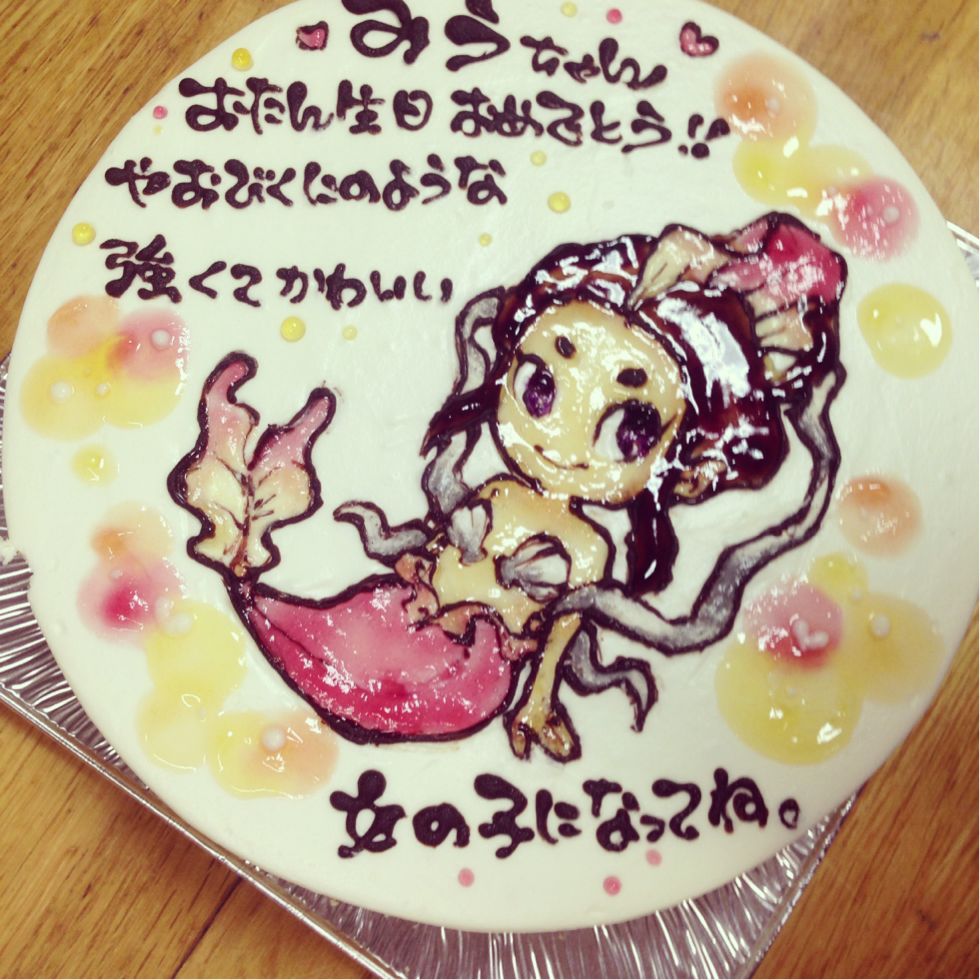 みうちゃん
おたん生日おめでとう!!
やおびくにのような
強くてかわいい
女の子になってね。